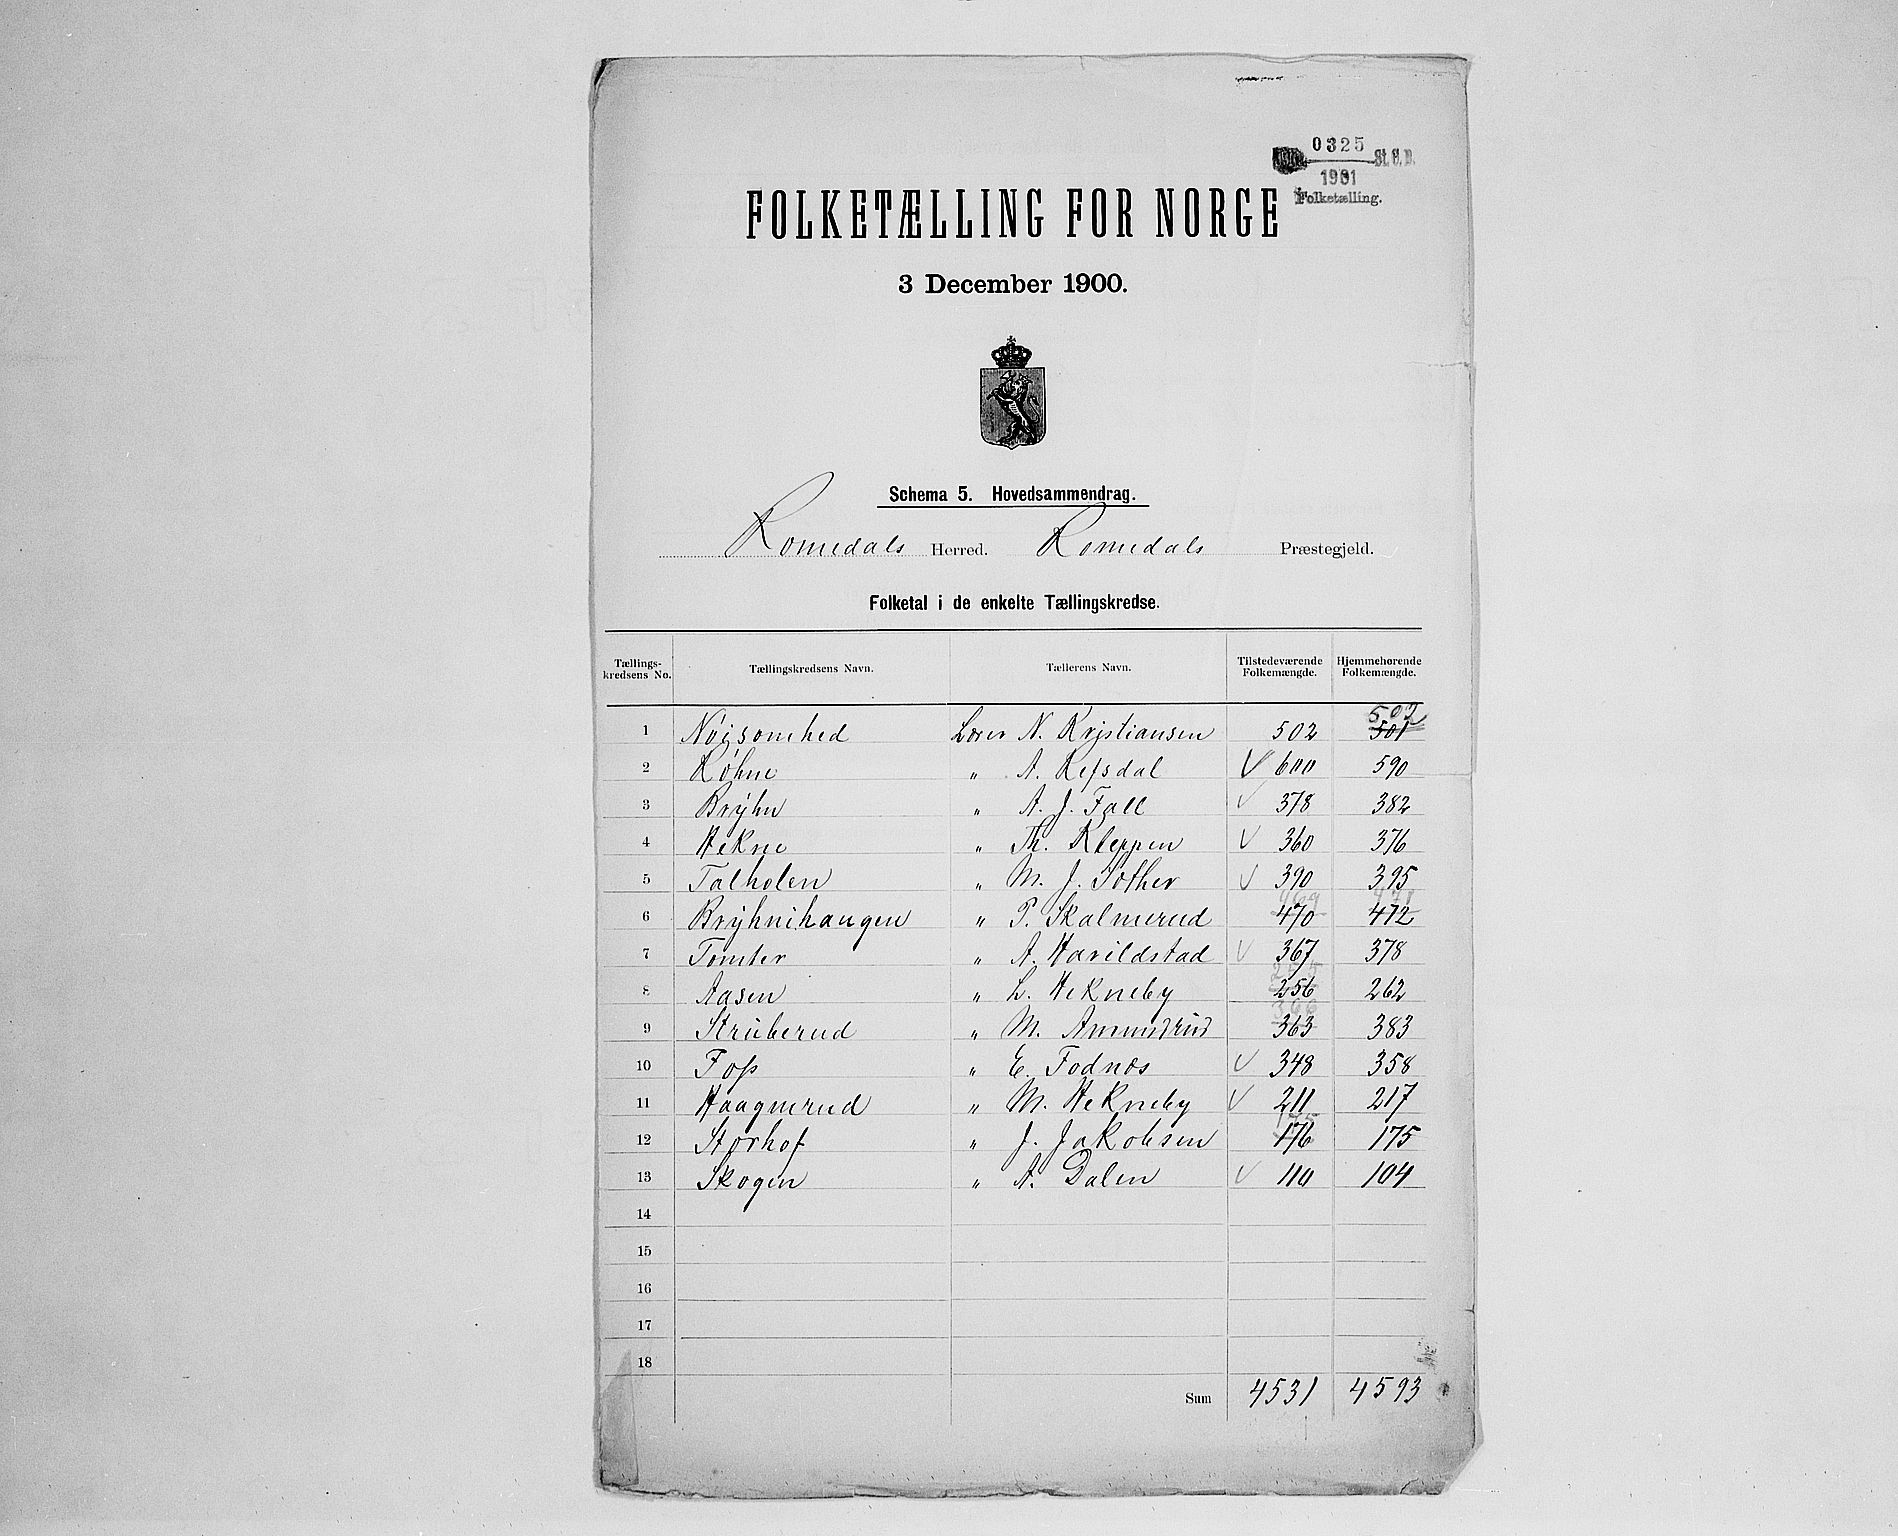 0325
St. C. B.
1901
Folketælling.
FOLKETÆLLING FOR NORGE
3 December 1900.
Schema 5. Hovedsammendrag.
Romedals Herred. Romedals Præstegjeld.
Folketal i de enkelte Tællingskredse.
Tællings-kredsens No. Tællingskredsens Navn. Tællerens Navn. Tilstedeværende Folkemængde. Hjemmehørende Folkemængde.
502
1 Nöisomhed Lærer N. Kristiansen 502 501
2 Köhne " A. Refsdal 600 590
3 Brÿhn " A. J. Fall 378 382
4 Hekne " Th. Kleppen 360 376
5 Talholen " M. J. Sother 390 395
469 471
6 Brÿhnihaugen " P. Skalmerud 470 472
7 Tomter " A. Harildstad 367 378
255
8 Aasen " L. Hekneby 256 262
9 Strüberud " M. Amundrud 363 383
10 Foss " E. Fodnæs 348 358
11 Haagmerud " M. Hekneby 211 217
175
12 Storhof " J. Jakobsen 176 175
13 Skogen " A. Dalen 110 104
14
15
16
17
18
Sum 4531 4593